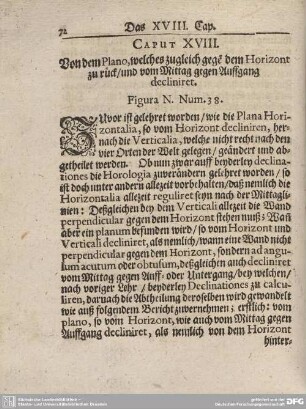 72
Das XVIII. Cap.
CAPUT XVIII.
Von dem Plano, welches zugleich gegē dem Horizont
zu rück / und vom Mittag gegen Auffgang
decliniret.
Figura N. Num. 38.
ZUvor ist gelehret worden / wie die Plana Hori-
zontalia, so vom Horizont decliniren, her-
nach die Verticalia, welche nicht recht nach den
vier Orten der Welt gelegen / geändert und ab-
getheilet werden. Ob nun zwar auff beyderley declina-
tiones die Horologia zuverändern gelehret worden / so
ist doch unter andern allezeit vorbehalten / daß nemlich die
Horizontalia allezeit reguliret seyn nach der Mittagli-
nien: Deßgleichen bey dem Verticali allezeit die Wand
perpendicular gegen dem Horizont stehen muß: Wañ
aber ein planum befunden wird / so vom Horizont und
Verticali decliniret, als nemlich / wann eine Wand nicht
perpendicular gegen dem Horizont, sondern ad angu-
lum acutum oder obtusum, deßgleichen auch decliniret
vom Mittag gegen Auff- oder Untergang / bey welchen /
nach voriger Lehr / beyderley Declinationes zu calcu-
liren, darnach die Abtheilung deroselben wird gewandelt
wie auß folgendem Bericht zuvernehmen; erstlich: vom
plano, so vom Horizont, wie auch vom Mittag gegen
Auffgang decliniret, als nemlich von dem Horizont
hinter-